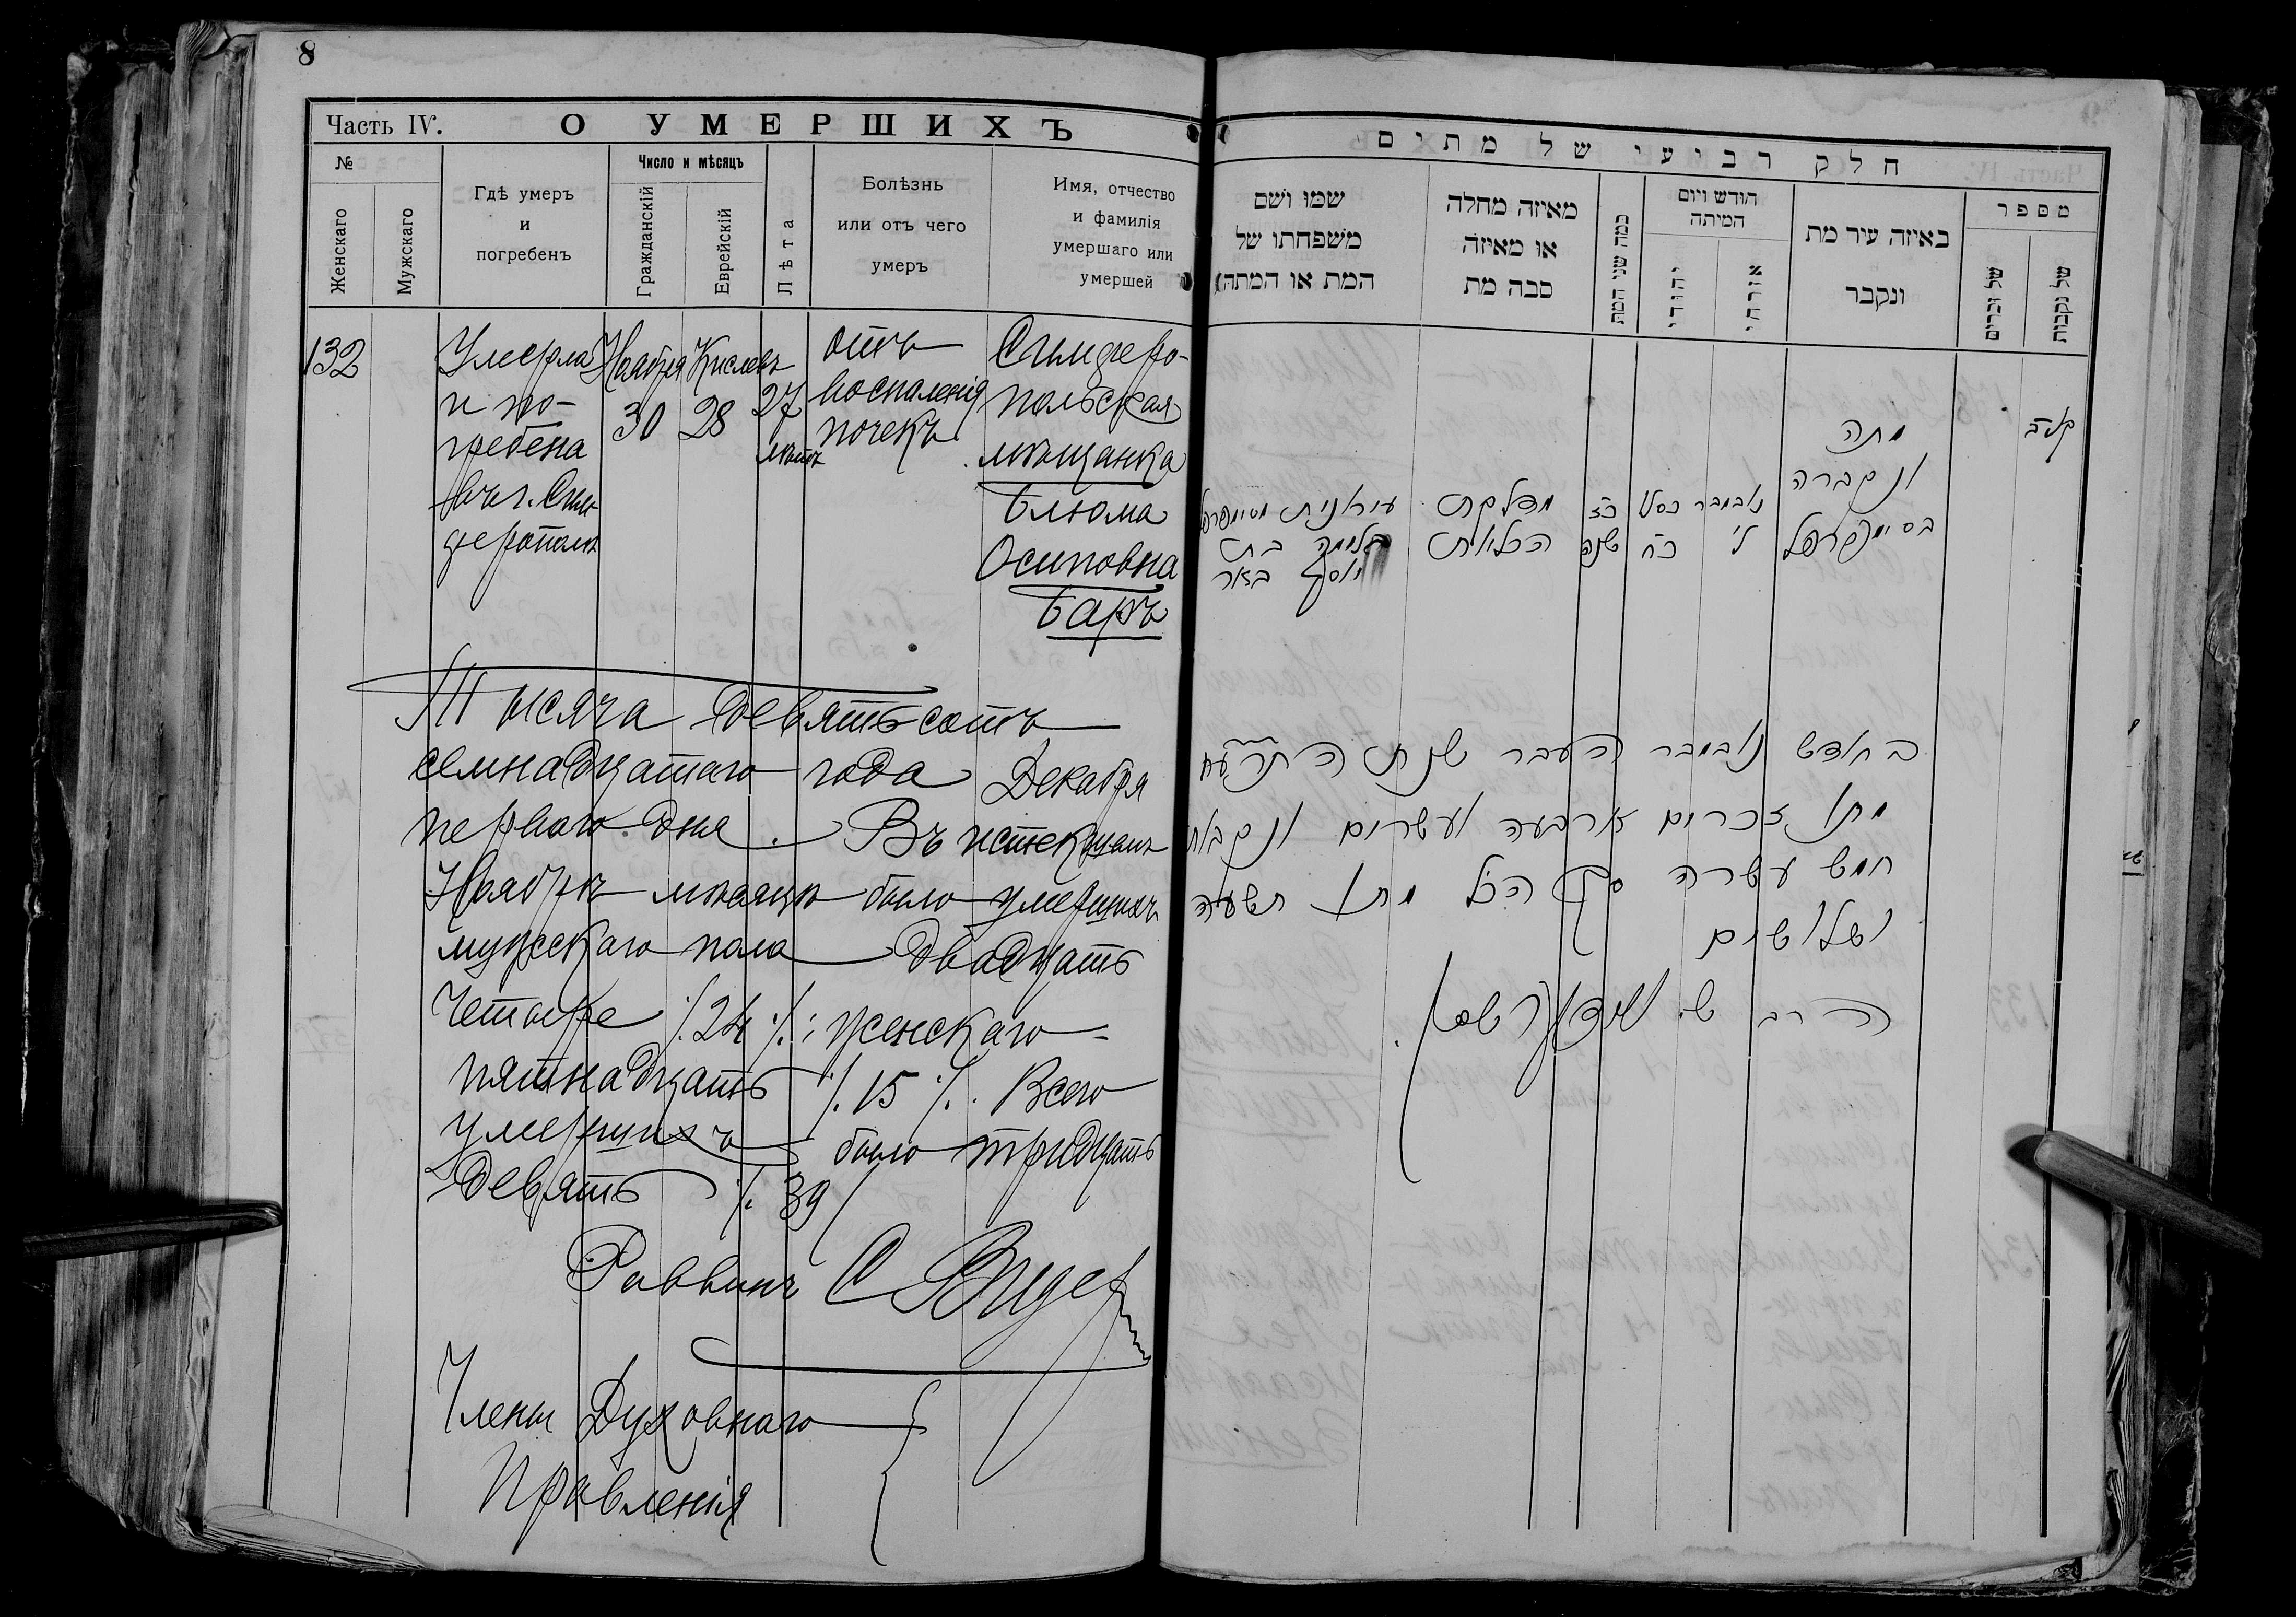 8
Часть IV.
О УМЕРШИХЪ
№
Женскаго
Мужскаго
Гдѣ умеръ
и
погребенъ
Число и мѣсяцъ
Гражданскій
Еврейскій
Лѣта
Болѣзнь
или отъ чего
умеръ
Имя, отчество
и фамилія
умершаго или
умершей
132
Умерла
и по-
гребена
въ г. Сим-
ферополѣ
Ноября
30
Кислевъ
28
27
лѣтъ
отъ
воспаленія
почекъ
Симферо-
польская
мѣщанка
Блюма
Осиповна
Баръ
Тысяча девятьсотъ
семнадцатаго года Декабря
перваго дня. Въ истекшемъ
Ноябрѣ мѣсяцѣ было умершихъ
мужскаго пола двадцать
четыре ./. 24 ./.; женскаго =
пятнадцать ./. 15 ./. Всего
умершихъ было тридцать
девять ./. 39 /
Раввинъ С
Члены Духовнаго
Правленія
חלק רביעי של מתים
שמו ושם
משפחתו של
המת או המתה)
מאיזה מחלה
או מאיזה
סבה מת
כמה שני המת
חודש ויום
המיתה
יהודי
אזרחי
באיזה עיר מת
ונקבר
מספר
של זכרים
של נקבות
קלב
מתה
ונקברה
בסימפרפל
נאבמבר
ל
כסלו
כח
כז
שנה
מדלקת
הכליות
עיראנית מסימפרפל
בלומה בת
יוסף באר
בחודש נאבמבר העבר שנת התרעח
מתו זכרים ארבעה ועשרים ונקבות
חמש עשרה סך הכל מתו תשעה
ושלושים
הרב ש.